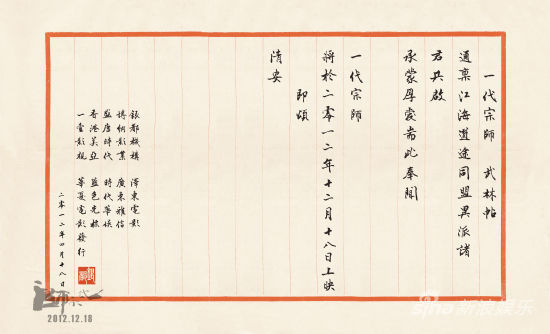 一代宗師 武林帖
通稟江海道途同盟異派諸
君共啟
承蒙厚愛耑此奉聞
一代宗師
將於二零一二年十二月十八日上映
即頌
清安
銀都機構 澤東電影
博納影業 廣東雅信
盛唐時代 時代華娛
香港美亞 藍色光標
一壹影視 華夏電影發行
二零一二年四月十八日
2012.12.18
sina 新浪娱乐